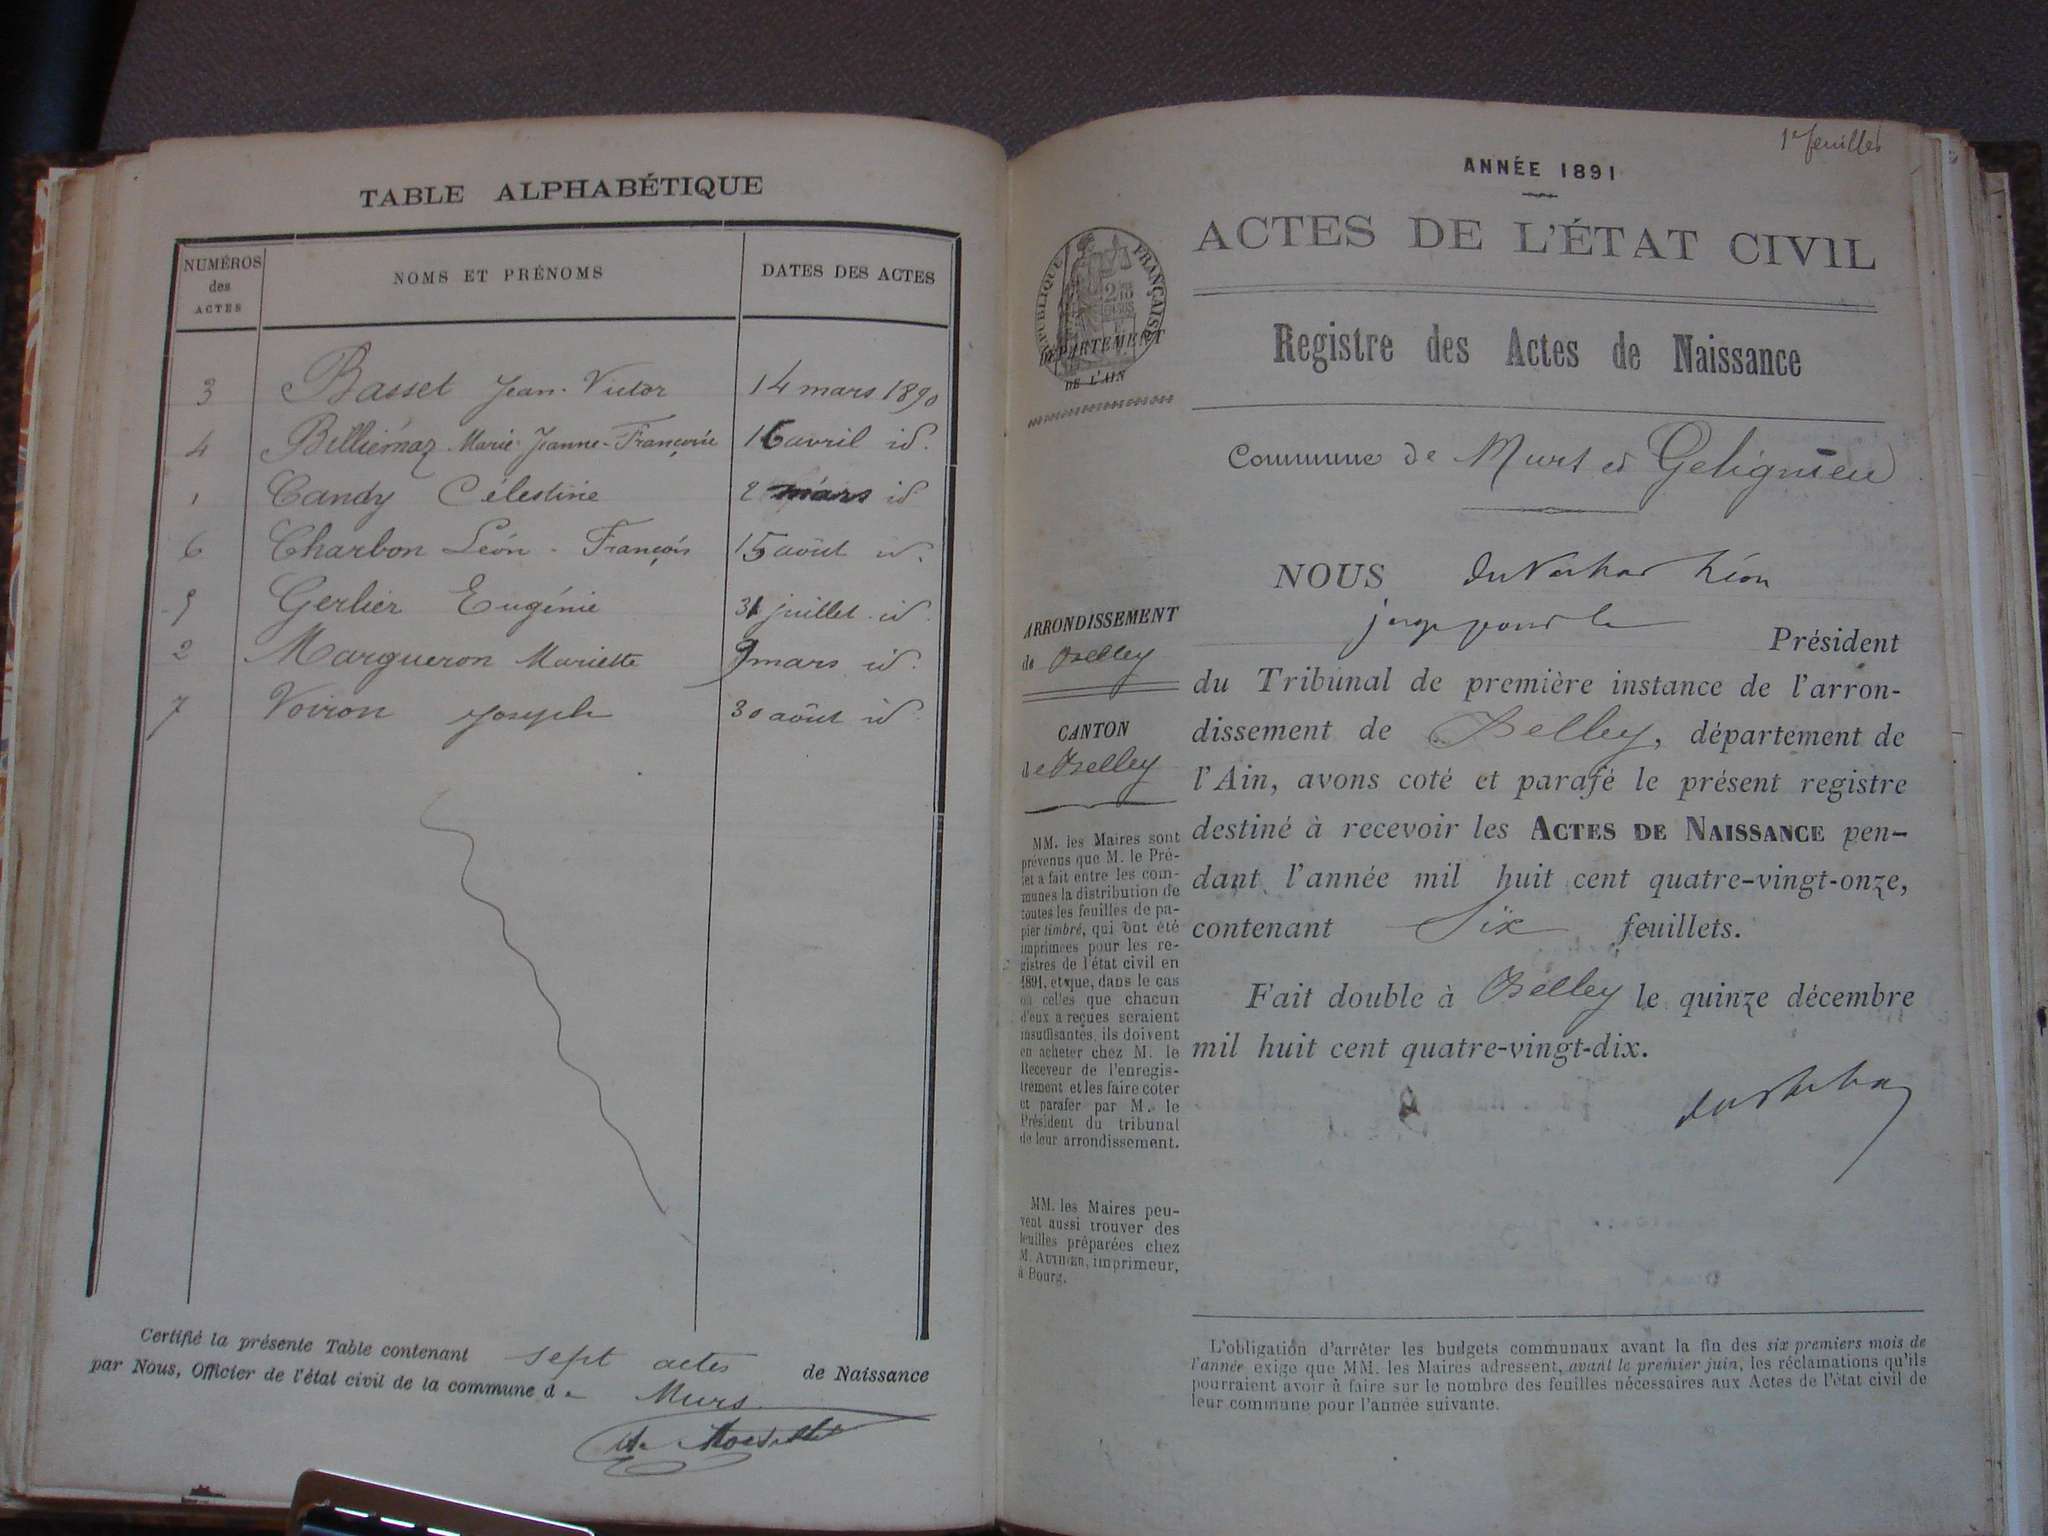 TABLE ALPHABÉTIQUE
NUMÉROS des ACTES
NOMS ET PRÉNOMS
DATES DES ACTES
3 Basset Jean-Victor 14 mars 1890
4 Billiémaz Marie-Jeanne-Françoise 16 avril id.
1 Candy Célestine 2 mars id
6 Charbon Léon-François 15 août id.
5 Gerlier Eugénie 31 juillet id.
2 Margueron Mariette 9 mars id.
7 Voiron Joseph 30 août id.
Certifié la présente Table contenant sept actes de Naissance
par Nous, Officier de l'état civil de la commune de Murs
1er feuillet
ANNÉE 1891
ACTES DE L'ÉTAT CIVIL
RÉPUBLIQUE FRANÇAISE
DÉPARTEMENT
DE L'AIN
Registre des Actes de Naissance
Commune de Murs et Gelignieu
NOUS
Léon
juge pour le
Président
du Tribunal de première instance de l'arron-
dissement de Belley, département de
l'Ain, avons coté et parafé le présent registre
destiné à recevoir les ACTES DE NAISSANCE pen-
dant l'année mil huit cent quatre-vingt-onze,
contenant Six feuillets.
Fait double à Belley le quinze décembre
mil huit cent quatre-vingt-dix.
ARRONDISSEMENT
de Belley
CANTON
de Belley
MM. les Maires sont
prévenus que M. le Pré-
fet a fait entre les com-
munes la distribution de
toutes les feuilles de pa-
pier timbré, qui ont été
imprimées pour les re-
gistres de l'état civil en
1891, et que, dans le cas
où celles que chacun
d'eux a reçues seraient
insuffisantes, ils doivent
en acheter chez M. le
Receveur de l'enregis-
trement et les faire coter
et parafer par M. le
Président du tribunal
de leur arrondissement.
MM. les Maires peu-
vent aussi trouver des
feuilles préparées chez
M. AUTHIER, imprimeur,
à Bourg.
L'obligation d'arrêter les budgets communaux avant la fin des six premiers mois de
l'année exige que MM. les Maires adressent, avant le premier juin, les réclamations qu'ils
pourraient avoir à faire sur le nombre des feuilles nécessaires aux Actes de l'état civil de
leur commune pour l'année suivante.